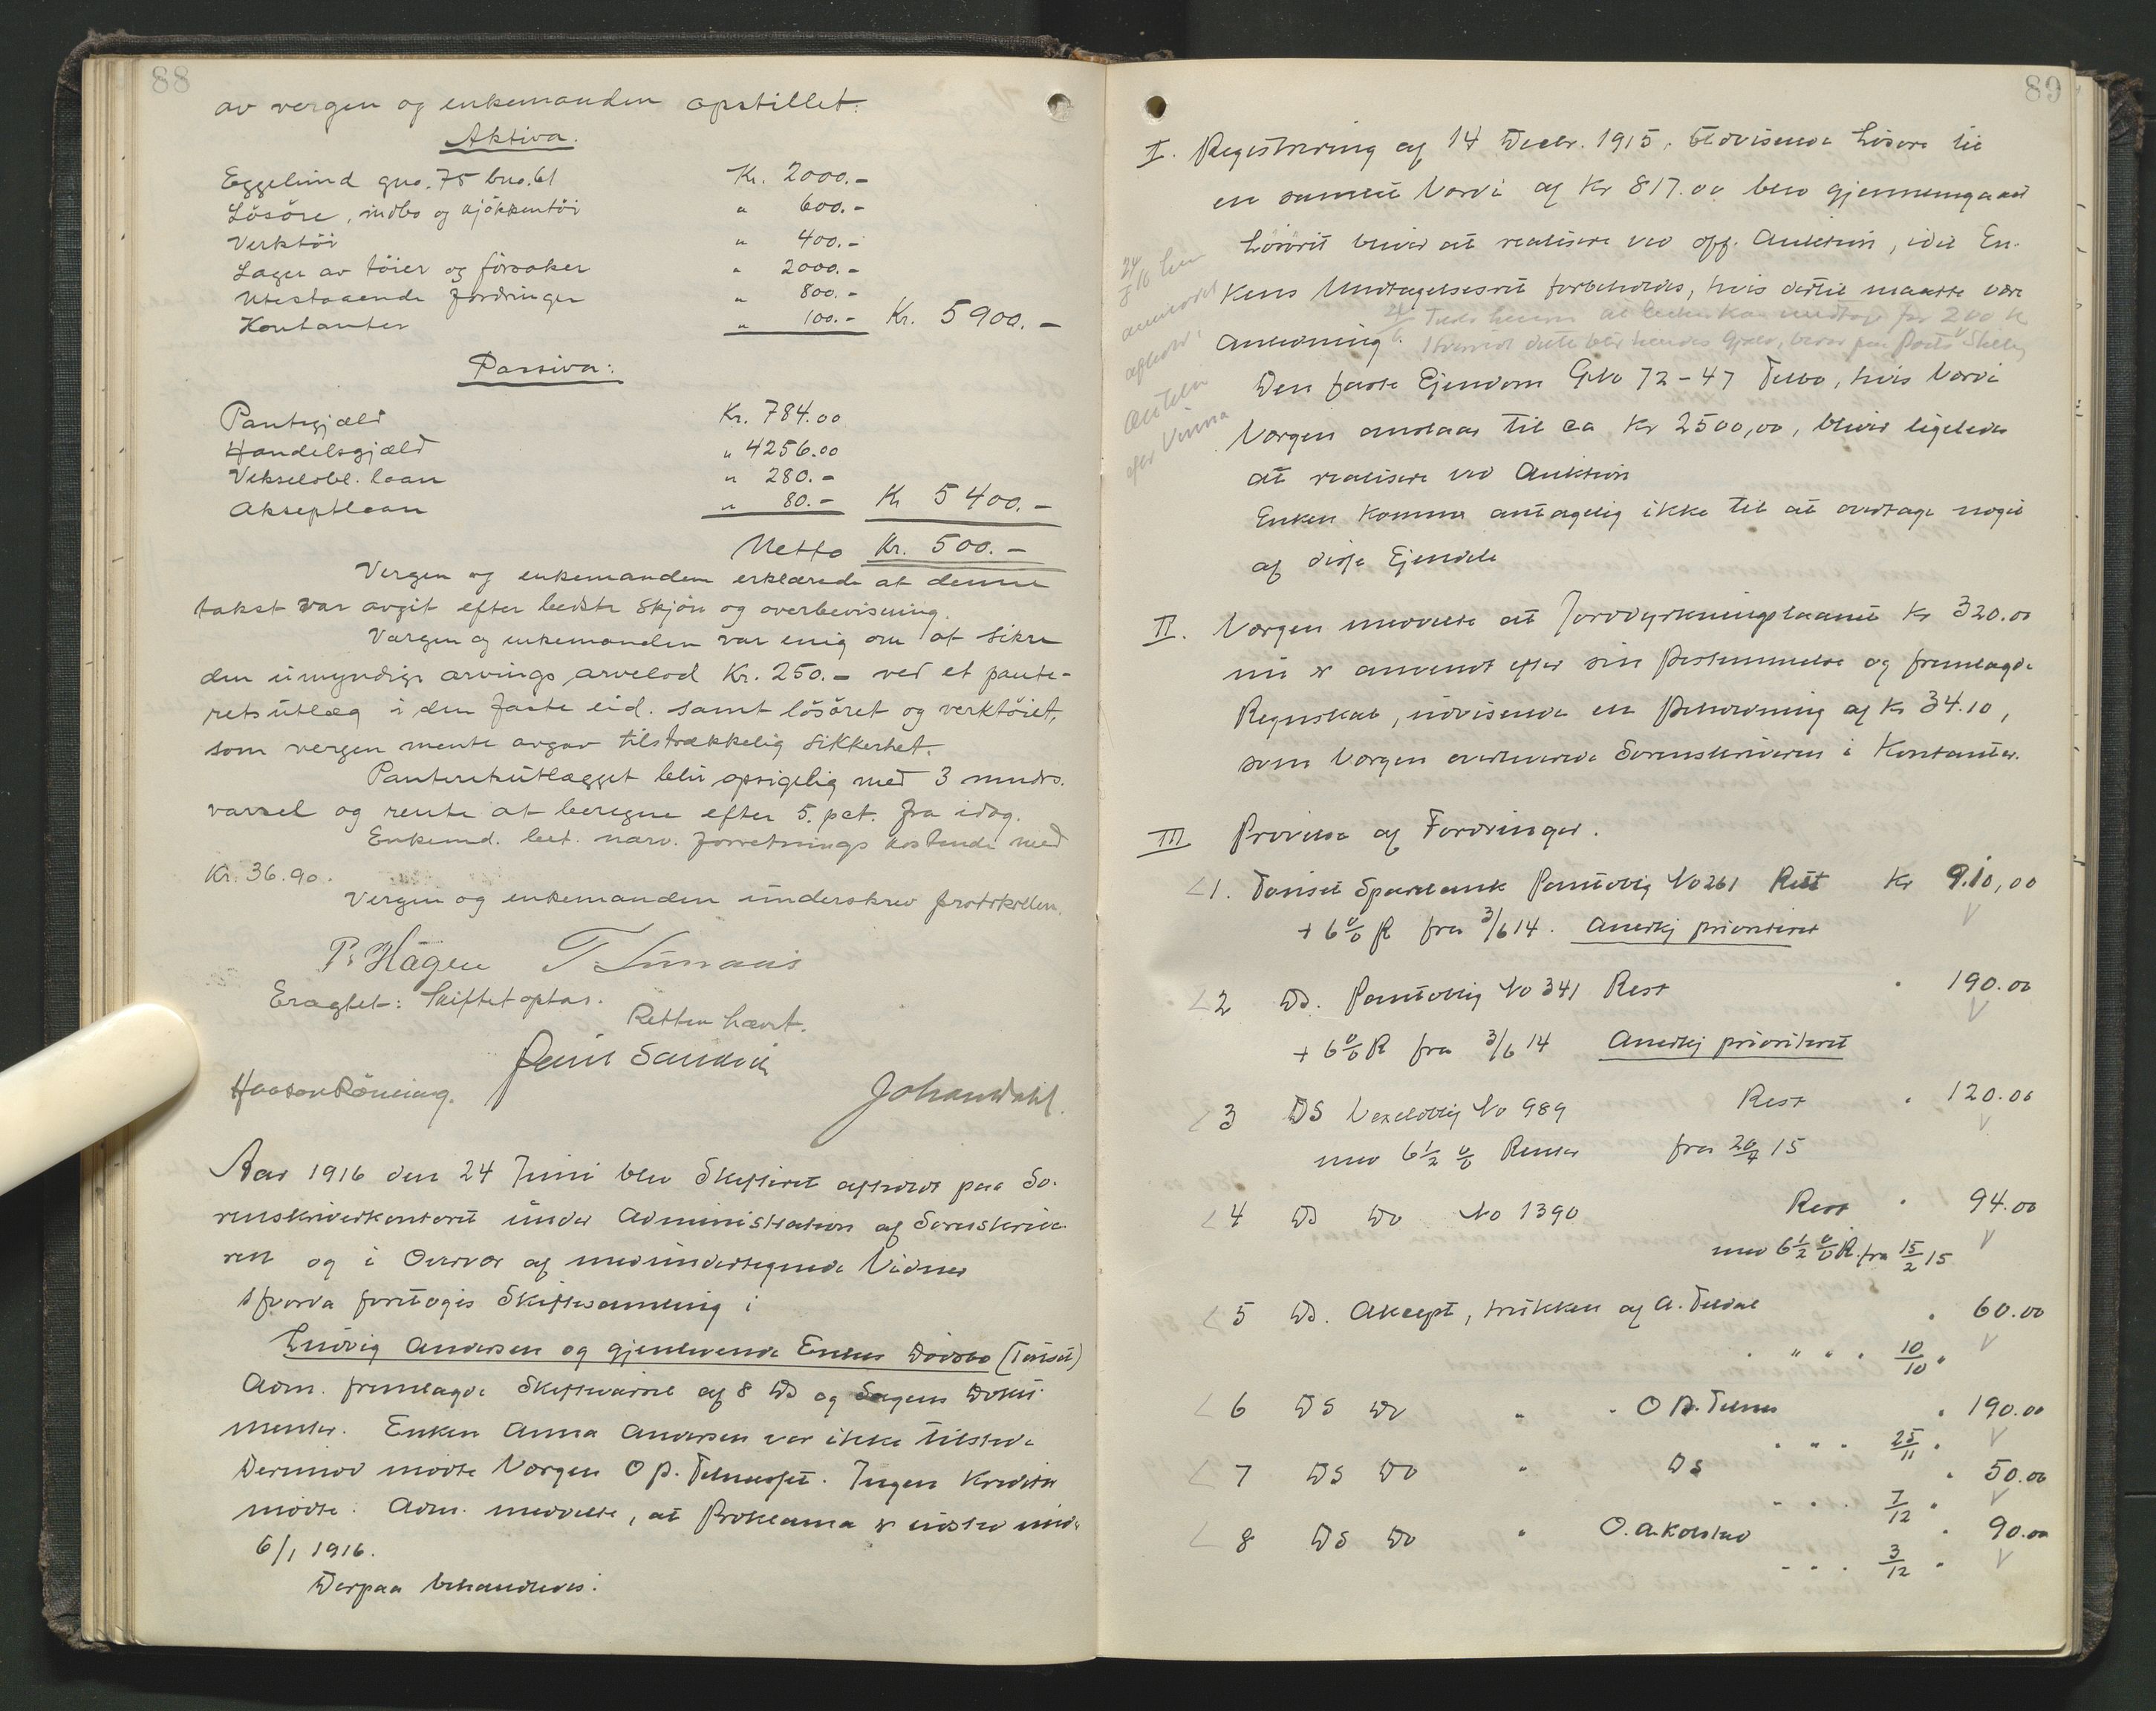 88
av vergen og enkemanden opstillet.
Aktiva.
Eggelund gno. 75 bno. 61 Kr. 2000.-
Lösöre, indbo og kjökkentöi " 600.-
Verktöi " 400.-
Lager av töier og försaker " 2000.-
Utestaaende fordringer " 800.-
Kontanter " 100.- Kr. 5900.-
Passiva:
Pantegjæld Kr. 784.00
Handelsgjæld " 4256.00
Vekselobl. laan " 280.-
Akseptlaan " 80.- Kr 5400.-
Netto Kr. 500.-
Vergen og enkemanden erklærede at denne
takst var avgit efter bedste skjön og overbevisning.
Vergen og enkemanden var enig om at sikre
den umyndige arvings arvelod Kr. 250.- ved et pante-
retsutlæg i den faste eid. samt lösöret og verktöiet,
som vergen mente avgav tilstrækkelig sikkerhet.
Panteretsutlægget blir opsigelig med 3 mndrs.
varsel og rente at beregne efter 5. pct. fra idag.
Enkemd. bet. narv. forretnings kostende med
Kr. 36.90.
Vergen og enkemanden underskrev protokollen.
P. Hagen T.
Eragtet: Skiftet optas.
Retten hævt.
Johan Dahl.
Aar 1916 den 24 Juni blev Skifteret afholdt paa So-
renskriverkontoret under Administration af Sorenskrive-
ren og i Overvær af medundertegnede Vidner
Hvorda foretoges Skiftesamling i
Ludvig Andersen og gjenlevende Enkes Dödsbo (Tönset)
Adm. fremlagde Skiftevarsel af 8 Ds og Sagens Doku-
menter. Enken Anna Andersen var ikke tilstede
Derimod mödte Værgen O P. Telneset. Ingen Kreditor
mödte. Adm. meddelte, at Proklama er udsted und.
6/1 1916.
Derpaa behandledes:
89
I. Registrering af 14 Decbr. 1915, udvisende Lösöre til
en samlet Værdi af Kr 817.00 blev gjennemgaaet
Lösöret bliver at realisere ved off. Auktion, idet En-
kens Undtagelsesret forbeholdes, hvis dertil maatte være
Anledning.
Den faste Ejendom GNo 72-47 Telbo, hvis Værdi
Værgen anslaar til ca Kr 2500,00, bliver ligeledes
at realisere ved Auktion
Enken kommer antagelig ikke til at overtage noget
af disse Ejendele
II. Værgen meddelte at Jorddyrkningslaanet Kr 320.00
nu er anvendt efter sin Bestemmelse og fremlagde
Regnskab, udvisende en Beholdning af Kr 34.10,
som Værgen overleverede Sorenskriveren i Kontanter.
III Prövelse af Fordringer.
1. Tönset Sparebank Pantoblig No 261 Rest Kr 910,00
+ 6 % R fra 3/6 14. Anerkj prioriteret
2 Ds. Pantoblig No 341 Rest " 190.00
+ 6 % R fra 3/6 14 Anerkj prioriteret
3 DS Vexeloblig No 989 Rest " 120.00
med 6 1/2 % Renter fra 20/7 15
4 Ds Do No 1390 Rest " 94.00
med 6 1/2 % R. fra 15/2 15
5 Ds. Akcept, trukken af A. Teldal " 60.00
" " " " 10/10 "
6 DS Do " " O P. Telnes " 190.00
" " " 25/11 "
7 DS Do " Ds " 50.00
" " " 7/12 "
8 DS Do " O. A. Kolstad " 90.00
" " " 3/12 "